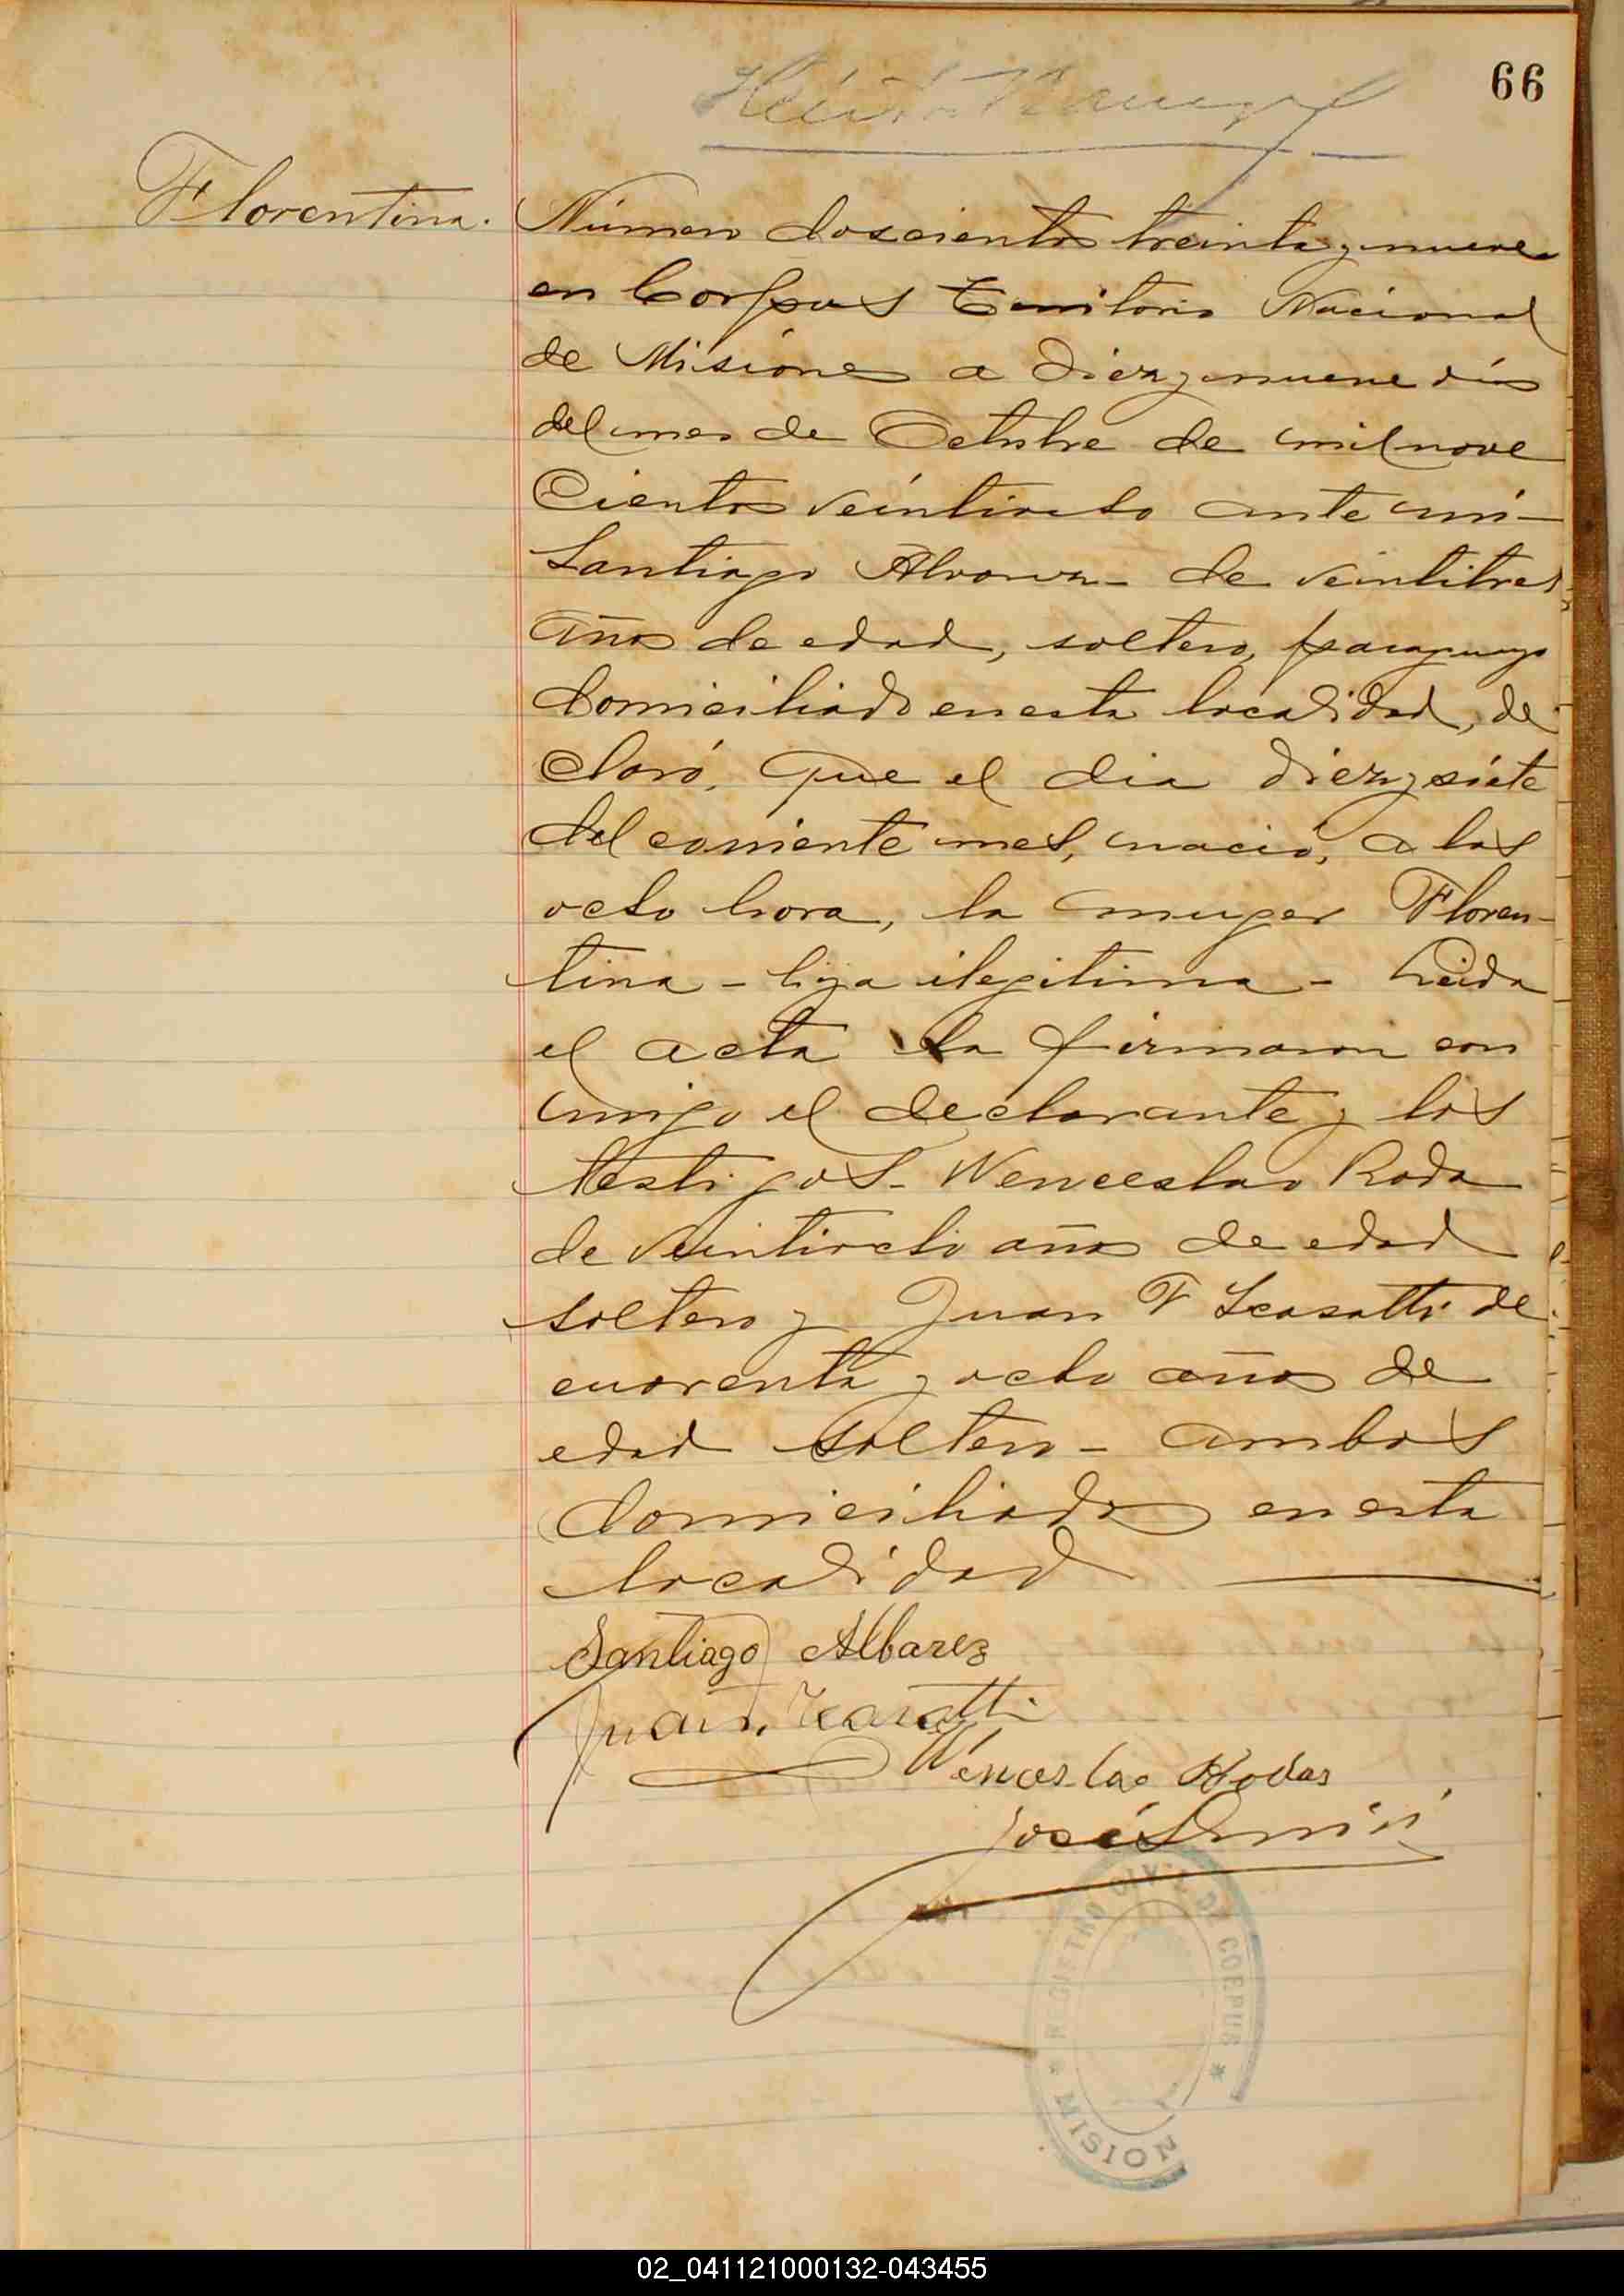 66
Florentina.
Número doscientos treinta y nueve
en Corpus Territorio Nacional
de Misiones a diez y nueve dias
del mes de Octubre de mil nove
cientos veintiocho ante mi -
Santiago Alvarez - de veintitres
años de edad, soltero, paraguayo
domiciliado en esta localidad, de
claró, Que el dia diez y siete
del corriente mes, nació, a las
octo hora, la muger Floren-
tina - hija ilegitima - Leida
el acta la firmaron con
migo el declarante y los
testigos - Wenceslao Roda
de veintiocho años de edad
soltero y Juan F Scasatti de
cuarenta y ocho años de
edad soltero - ambos
domiciliados en esta
localidad
Santiago Albarez
Juan F. Scasatti
Wenceslao Rodas
José
REGISTRO CIVIL DE CORPUS * MISION *
02_041121000132-043455